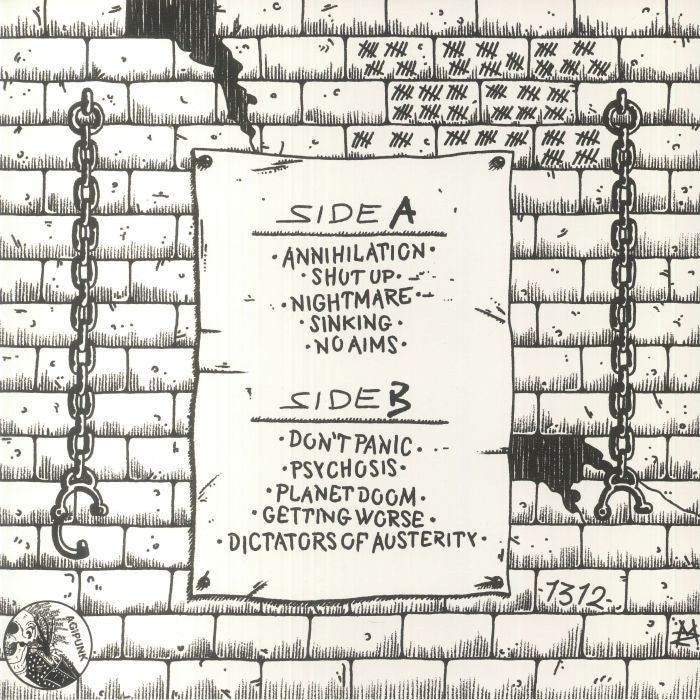 SIDE A
·ANNIHILATION·
·SHUT UP·
·NIGHTMARE·
·SINKING·
·NO AIMS·
SIDE B
·DON'T PANIC·
·PSYCHOSIS·
·PLANET DOOM·
·GETTING WORSE·
·DICTATORS OF AUSTERITY·
-1312-
AGIPUNK